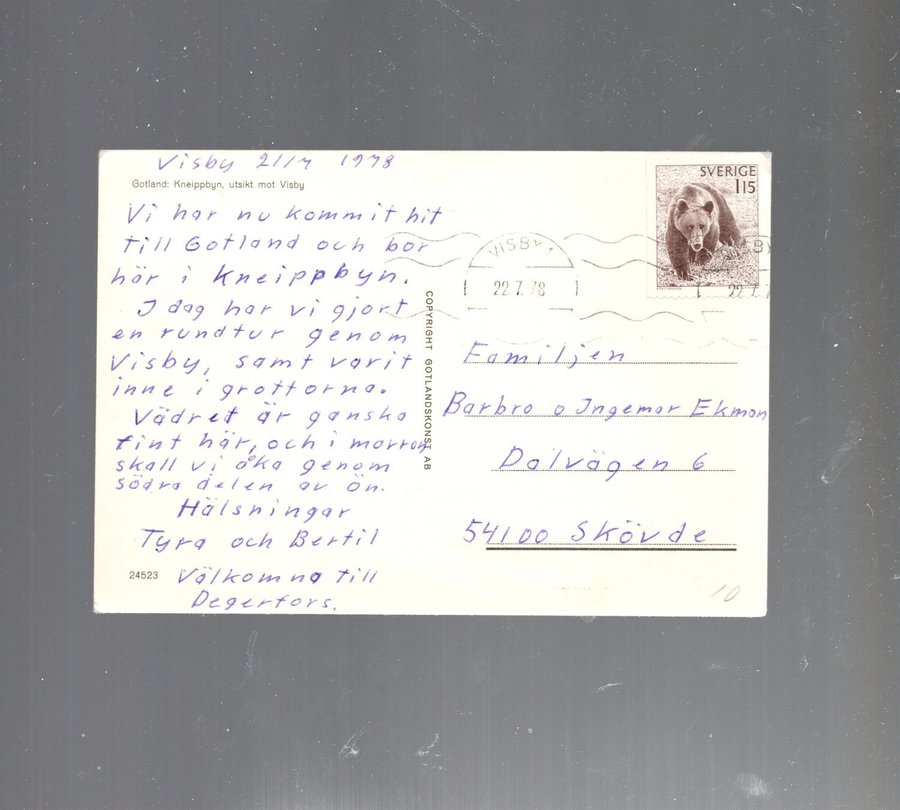 Visby 21/7 1978
Gotland: Kneippbyn, utsikt mot Visby
Vi har nu kommit hit
till Gotland och bor
här i Kneippbyn.
I dag har vi gjort
en rundtur genom
Visby, samt varit
inne i grottorna.
Vädret är ganska
fint här, och i morron
skall vi åka genom
södra delen av ön.
Hälsningar
Tyra och Bertil
24523
Välkomna till
Degerfors.
COPYRIGHT GOTLANDSKONST AB
SVERIGE
115
VISBY 1
22.7.78
VISBY
22.7.7
Familjen
Barbro o Ingemar Ekman
Dalvägen 6
54100 Skövde
10